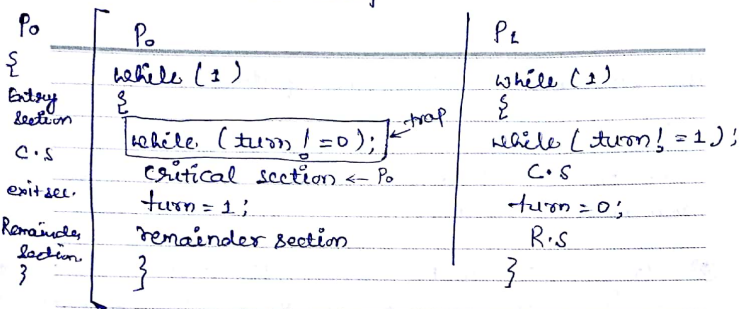 P0
{
Entry
Section
C.S
exit sec.
Remainder
Section
}
P0
while (1)
{
while (turn != 0);
trap
critical section ← P0
turn = 1;
remainder section
}
P1
while (1)
{
while (turn != 1);
C.S
turn = 0;
R.S
}